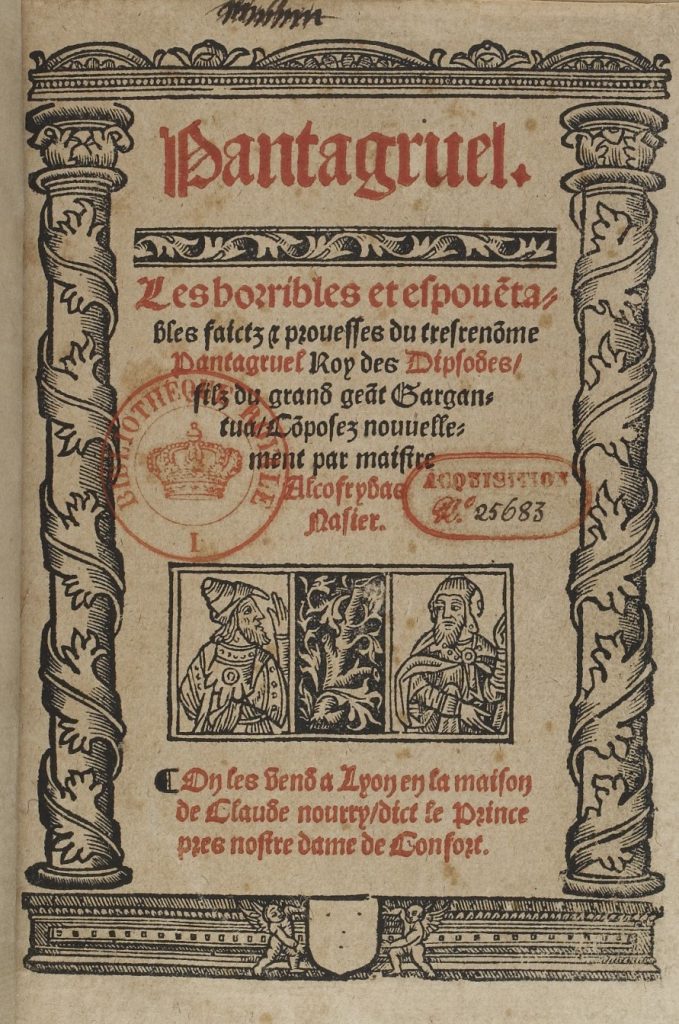 Pantagruel.
Les horribles et espouẽta-
bles faictz & prouesses du tresrenõme
Pantagruel Roy des Dipsodes/
filz du grand geãt Gargan-
tua/ Cõposez nouuelle-
ment par maistre
Alcofrybas
Nasier.
BIBLIOTHEQUE ROYALE
I.
ACQUISITION
No. 25683
¶ On les vend a Lyon en la maison
de Claude nourry/ dict le Prince
pres nostre dame de Confort.